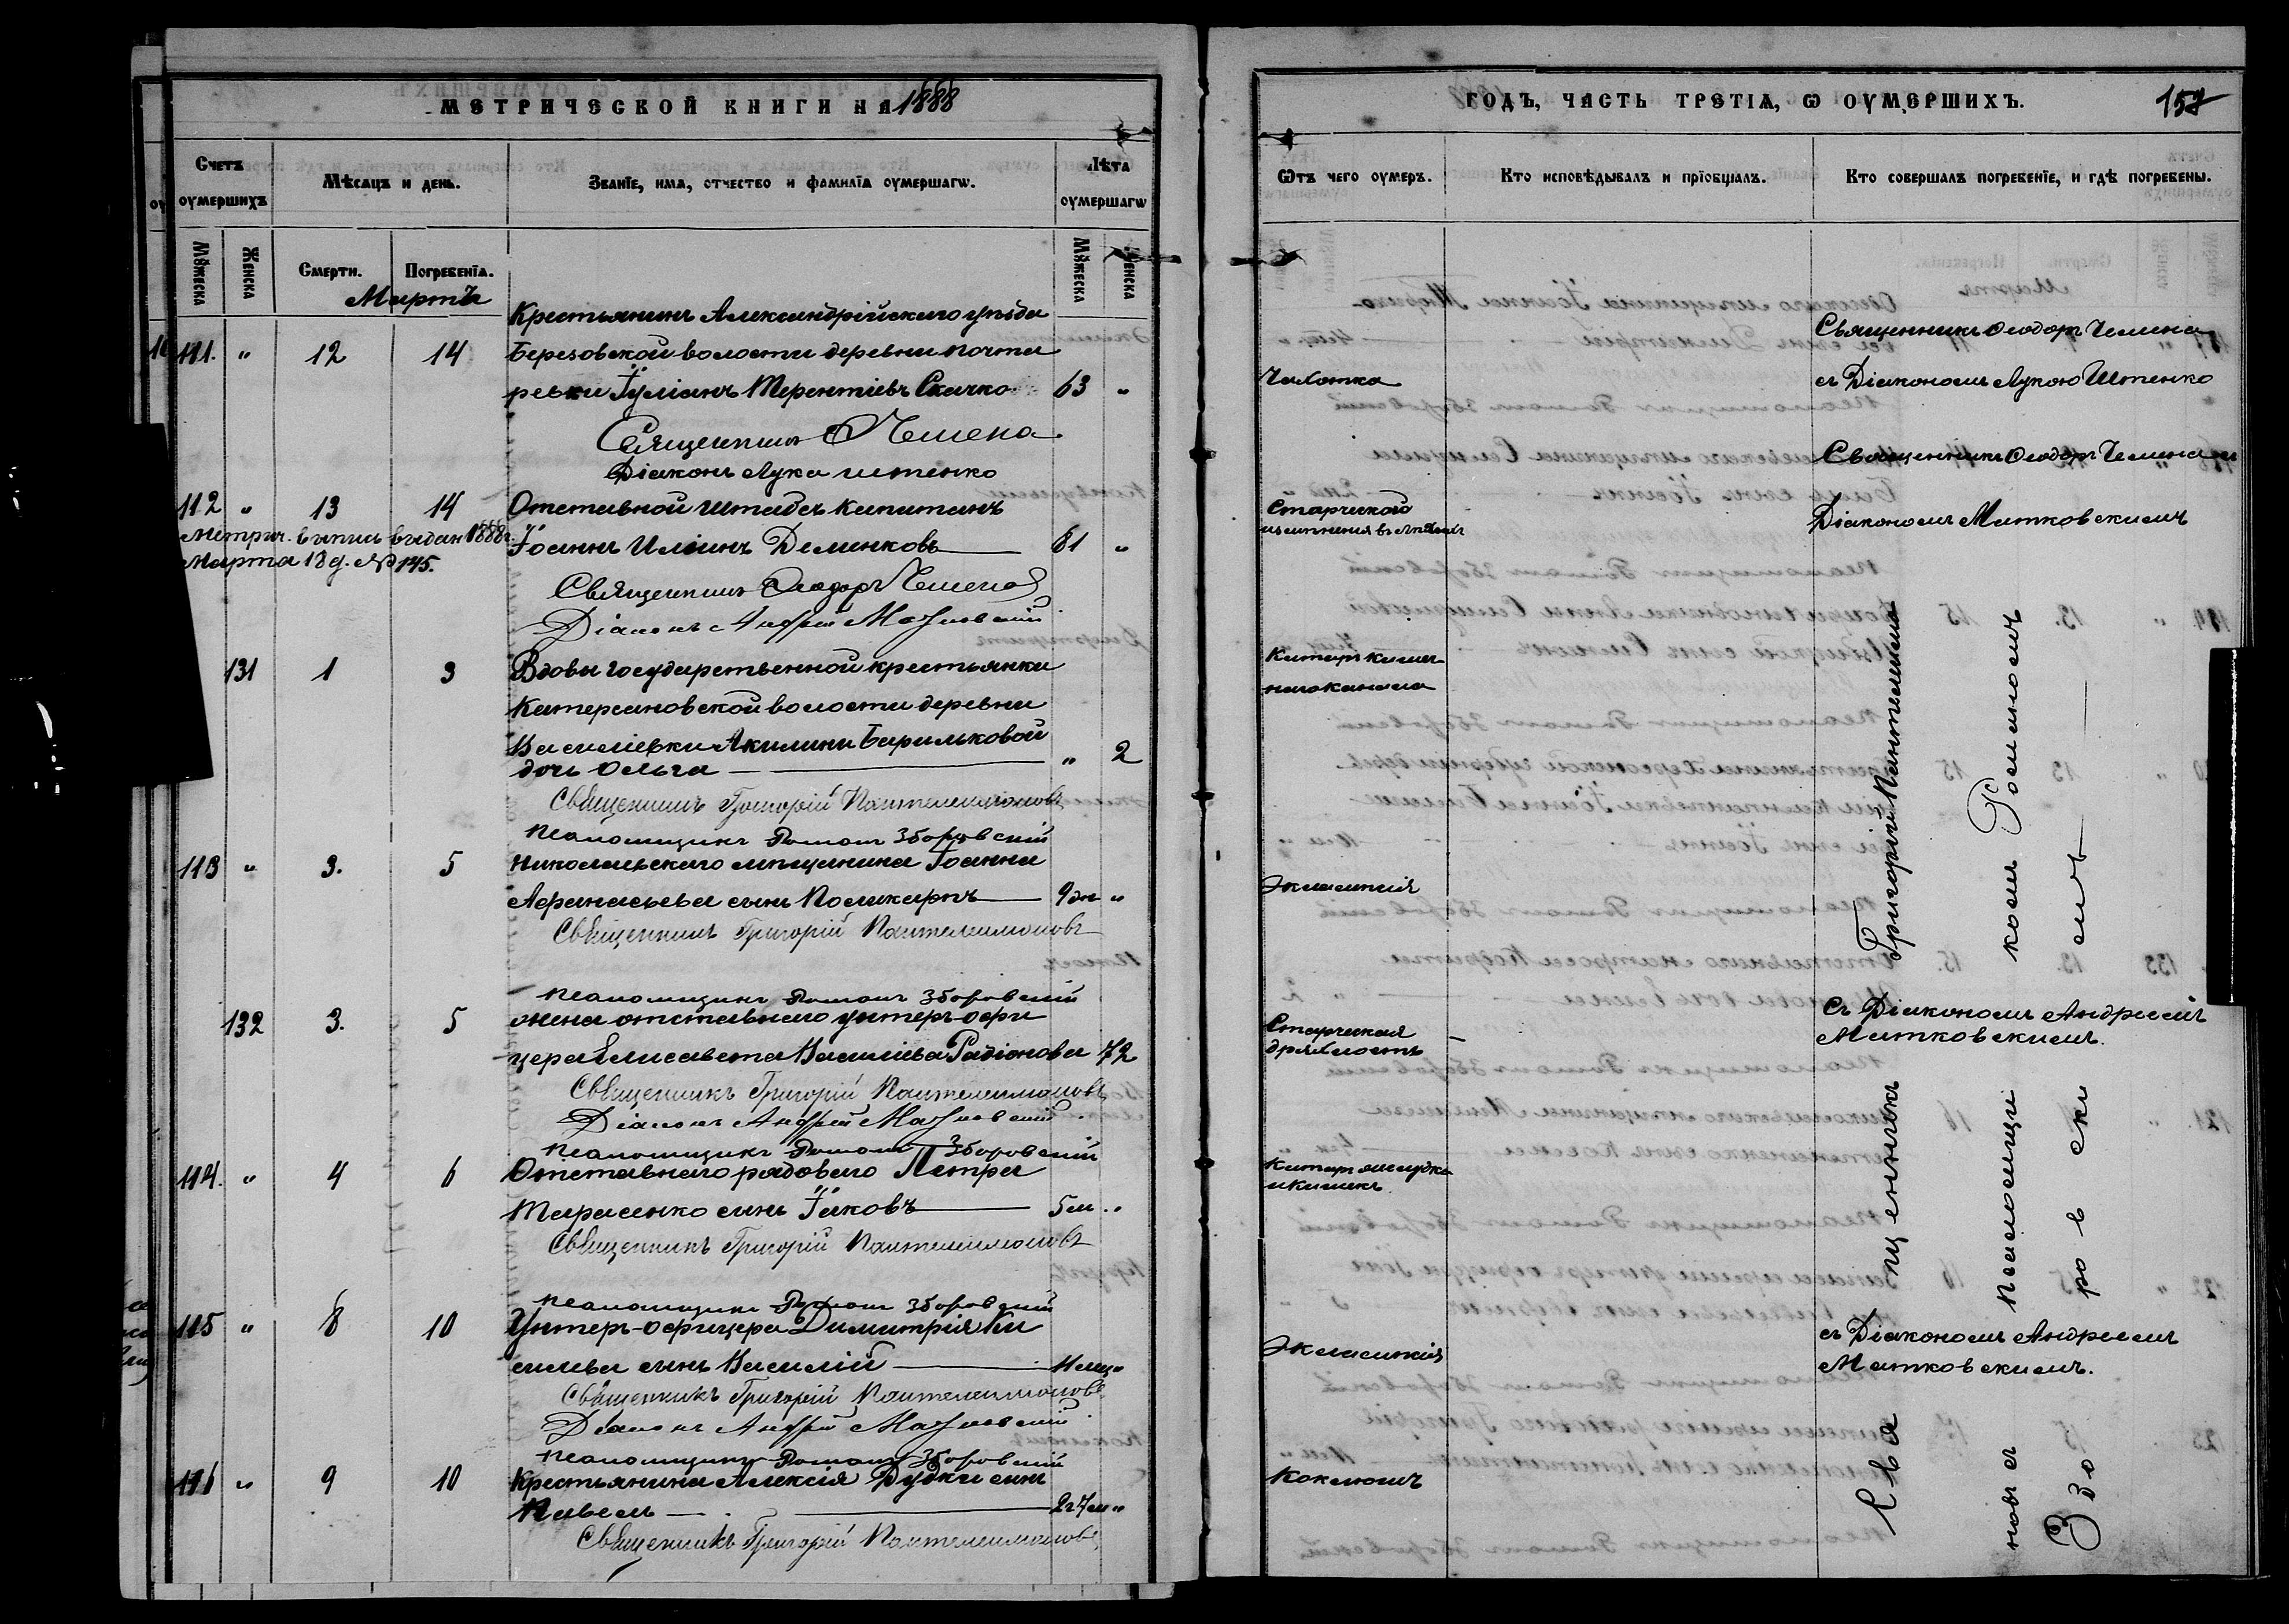 МЕТРИЧЕСКОЙ КНИГИ НА 1888
Счетъ оумершихъ
Мѣсяцъ и день.
Званіе, имя, отчество и фамилія оумершагѡ.
Лѣта оумершагѡ
Мꙋжеска
Женска
Смерти.
Погребенія.
Мꙋжеска
Женска
Мартъ
Крестьянинъ Александрійскаго уѣзда
111. " 12 14 Березовской волости деревни Почта
ревки Іуліанъ Терентіевъ Скачко 63 "
Священникъ Ѳ Чемена
Діаконъ Лука Иштенко
112 " 13 14 Отставной Штабсъ Капитанъ
Метрич. выпись выдан 1888 г.
Марта 18 д. № 145.
Іоаннъ Иліинъ Деменковъ 81 "
Священникъ Ѳеодоръ Чемена
Діаконъ Андрей Матковскій
131 1 3 Вдовы государственной крестьянки
Катериновской волости деревни
Василіевки Акилины Барильковой
дочь Ольга " 2
Священникъ Григорій Пантелеимоновъ
Псаломщикъ Романъ Зборовскій
113 " 3. 5 Николаевскаго мѣщанина Іоанна
Афанасьева сынъ Поликарпъ 9 дн "
Священникъ Григорій Пантелеимоновъ
Псаломщикъ Романъ Зборовскій
132 3. 5 жена отставнаго унтеръ-офи
цера Елисавета Василіева Радіонова 72
Священникъ Григорій Пантелеимоновъ
Діаконъ Андрей Матковскій
Псаломщикъ Романъ Зборовскій
114. " 4 6 Отставнаго рядоваго Петра
Тарасенко сынъ Іаковъ 5 м "
Священникъ Григорій Пантелеимоновъ
Псаломщикъ Романъ Зборовскій
115 " 8 10 Унтеръ-офицера Димитрія Ки
сильва сынъ Василій 11 мц "
Священникъ Григорій Пантелеимоновъ
Діаконъ Андрей Матковскій
Псаломщикъ Романъ Зборовскій
116 " 9 10 Крестьянина Алексія Дудки сынъ
Павелъ 2 г 7 м "
Священникъ Григорій Пантелеимоновъ
ГОДЪ, ЧАСТЬ ТРЕТІЯ, Ѡ ОУМЕРШИХЪ.
157
Ѿтъ чего оумеръ.
Кто исповѣдывалъ и пріобщалъ.
Кто совершалъ погребеніе, и гдѣ погребены.
Священникъ Ѳеодоръ Чемена
Чахотка
съ Діакономъ Лукою Иштенко
Священникъ Ѳеодоръ Чемена съ
Старческаго
Діакономъ Матковскимъ
Катаръ кишеч
наго канала
Эклампсія
Старческая
дряхлость
съ Діакономъ Андреемъ
Матковскимъ.
Катаръ желудка
и кишекъ
Эклампсія
съ Діакономъ Андреемъ
Матковскимъ.
Коклюшъ
Священникъ Григорій Пантелеимо
новъ съ Псаломщикомъ Романомъ
Зборовскимъ